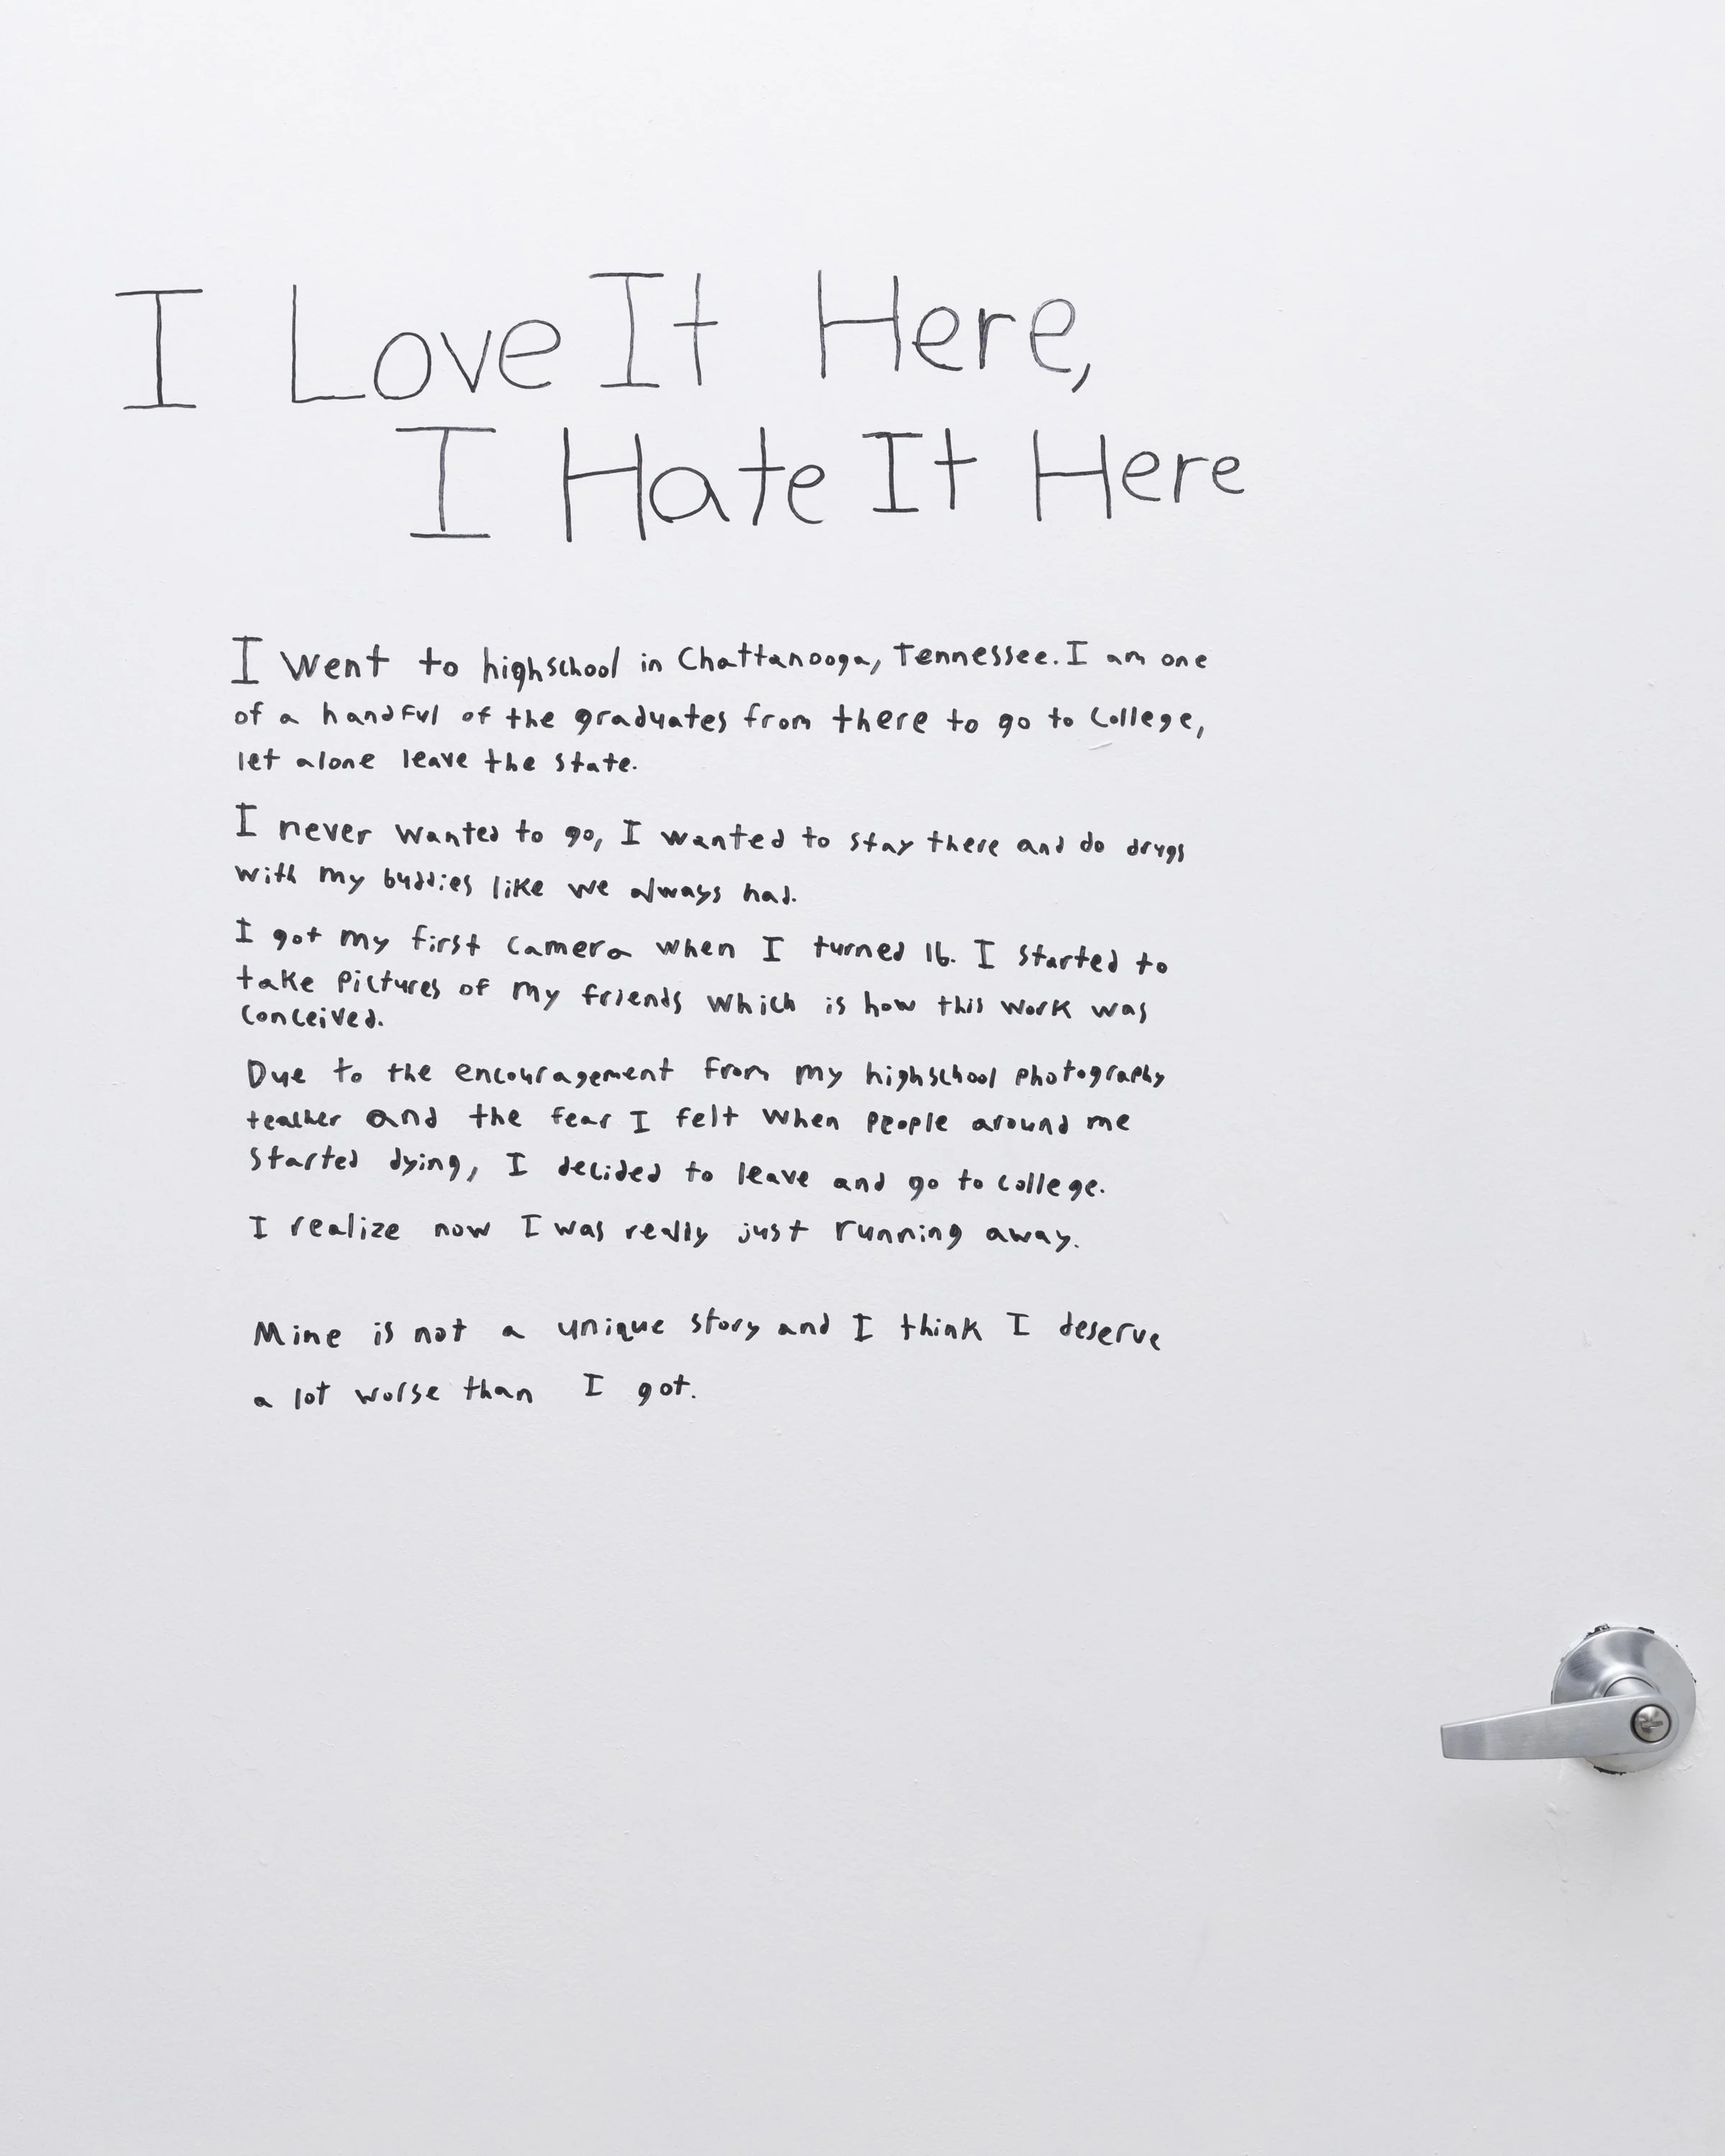 I Love It Here,
I Hate It Here
I went to highschool in Chattanooga, Tennessee. I am one
of a handful of the graduates from there to go to college,
let alone leave the state.
I never wanted to go, I wanted to stay there and do drugs
with my buddies like we always had.
I got my first camera when I turned 16. I started to
take pictures of my friends which is how this work was
conceived.
Due to the encouragement from my highschool photography
teacher and the fear I felt when people around me
started dying, I decided to leave and go to college.
I realize now I was really just running away.
Mine is not a unique story and I think I deserve
a lot worse than I got.